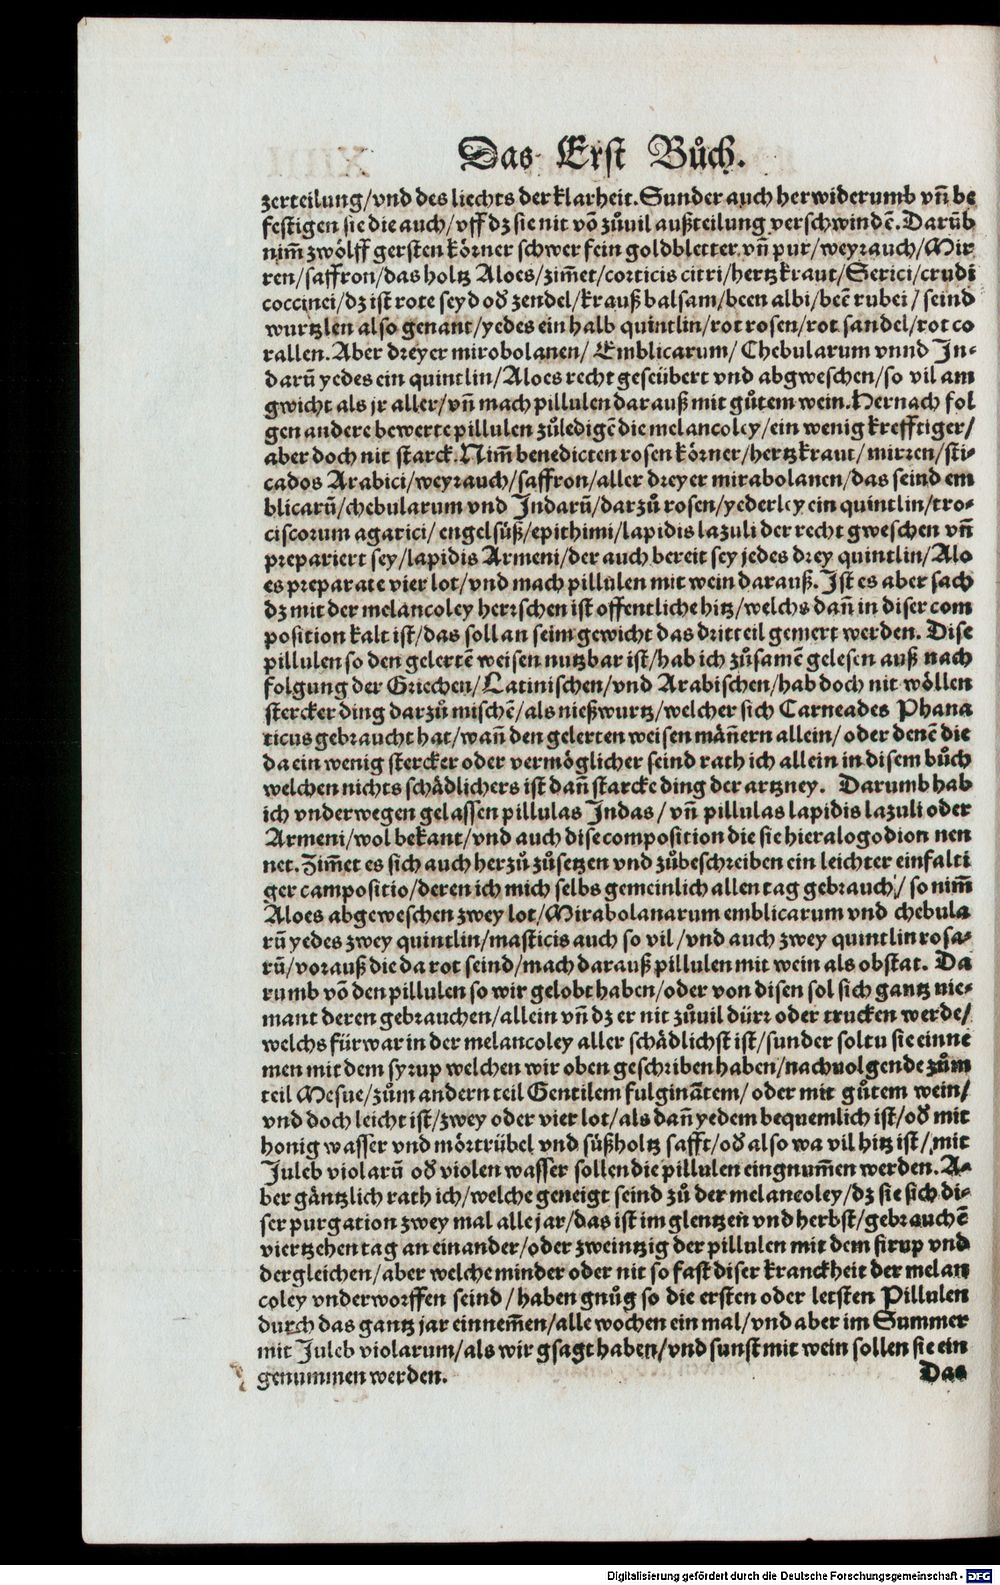 Das Erst Bůch.
zerteilung/vnd des liechts der klarheit. Sunder auch herwiderumb vñ be
festigen sie die auch/vff dz sie nit võ zůuil außteilung verschwindẽ. Darũb
nim̃ zwölff gersten körner schwer fein goldbletter vñ pur/weyrauch/Mir
ren/saffron/das holtz Aloes/zim̃et/corticis citri/hertzkraut/Serici/crudi
coccinei/dz ist rote seyd oď zendel/krauß balsam/been albi/beẽ rubei/seind
wurtzlen also genant/yedes ein halb quintlin/rot rosen/rot sandel/rot co
rallen. Aber dreyer mirobolanen/ Emblicarum/ Chebularum vnnd In-
darũ yedes ein quintlin/Aloes recht geseübert vnd abgweschen/so vil am
gwicht als jr aller/vñ mach pillulen darauß mit gůtem wein. Hernach fol
gen andere bewerte pillulen zůledigẽ die melancoley/ein wenig krefftiger/
aber doch nit starck. Nim̃ benedicten rosen körner/hertzkraut/mirren/sti-
cados Arabici/weyrauch/saffron/aller dreyer mirabolanen/das seind em
blicarũ/chebularum vnd Indarũ/darzů rosen/yederley ein quintlin/tro-
ciscorum agarici/engelsüß/epithimi/lapidis lazuli der recht gweschen vñ
prepariert sey/lapidis Armeni/der auch bereit sey jedes drey quintlin/Alo
es preparate vier lot/vnd mach pillulen mit wein darauß. Ist es aber sach
dz mit der melancoley herrschen ist offentliche hitz/welchs dañ in diser com
position kalt ist/das soll an seim gewicht das dritteil gemert werden. Dise
pillulen so den gelertẽ weisen nutzbar ist/hab ich zůsamẽ gelesen auß nach
folgung der Griechen/Latinischen/vnd Arabischen/hab doch nit wöllen
stercker ding darzů mischẽ/als nießwurtz/welcher sich Carneades Phana
ticus gebraucht hat/wañ den gelerten weisen mäñern allein/oder denẽ die
da ein wenig stercker oder vermöglicher seind rath ich allein in disem bůch
welchen nichts schädlichers ist dañ starcke ding der artzney. Darumb hab
ich vnderwegen gelassen pillulas Indas/ vñ pillulas lapidis lazuli oder
Armeni/wol bekant/vnd auch dise composition die sie hieralogodion nen
net. Zim̃et es sich auch herzů zůsetzen vnd zůbeschreiben ein leichter einfalti
ger campositio/deren ich mich selbs gemeinlich allen tag gebrauch/ so nim̃
Aloes abgeweschen zwey lot/Mirabolanarum emblicarum vnd chebula
rũ yedes zwey quintlin/masticis auch so vil/vnd auch zwey quintlin rosa-
rũ/vorauß die da rot seind/mach darauß pillulen mit wein als obstat. Da
rumb võ den pillulen so wir gelobt haben/oder von disen sol sich gantz nie-
mant deren gebrauchen/allein vñ dz er nit zůuil dürr oder trucken werde/
welchs fürwar in der melancoley aller schädlichst ist/sunder soltu sie einne
men mit dem syrup welchen wir oben geschriben haben/nachuolgende zům
teil Mesue/zům andern teil Gentilem fulginãtem/ oder mit gůtem wein/
vnd doch leicht ist/zwey oder vier lot/als dañ yedem bequemlich ist/oď mit
honig wasser vnd mörtrübel vnd süßholtz safft/oď also wa vil hitz ist/mit
Juleb violarũ oď violen wasser sollen die pillulen eingnum̃en werden. A-
ber gäntzlich rath ich/welche geneigt seind zů der melancoley/dz sie sich di-
ser purgation zwey mal alle jar/das ist im glentzen vnd herbst/gebrauchẽ
viertzehen tag an einander/oder zweintzig der pillulen mit dem sirup vnd
dergleichen/aber welche minder oder nit so fast diser kranckheit der melan
coley vnderworffen seind/haben gnůg so die ersten oder letsten Pillulen
durch das gantz jar einnem̃en/alle wochen ein mal/vnd aber im Summer
mit Juleb violarum/als wir gsagt haben/vnd sunst mit wein sollen sie ein
genummen werden. Das
Digitalisierung gefördert durch die Deutsche Forschungsgemeinschaft - DFG